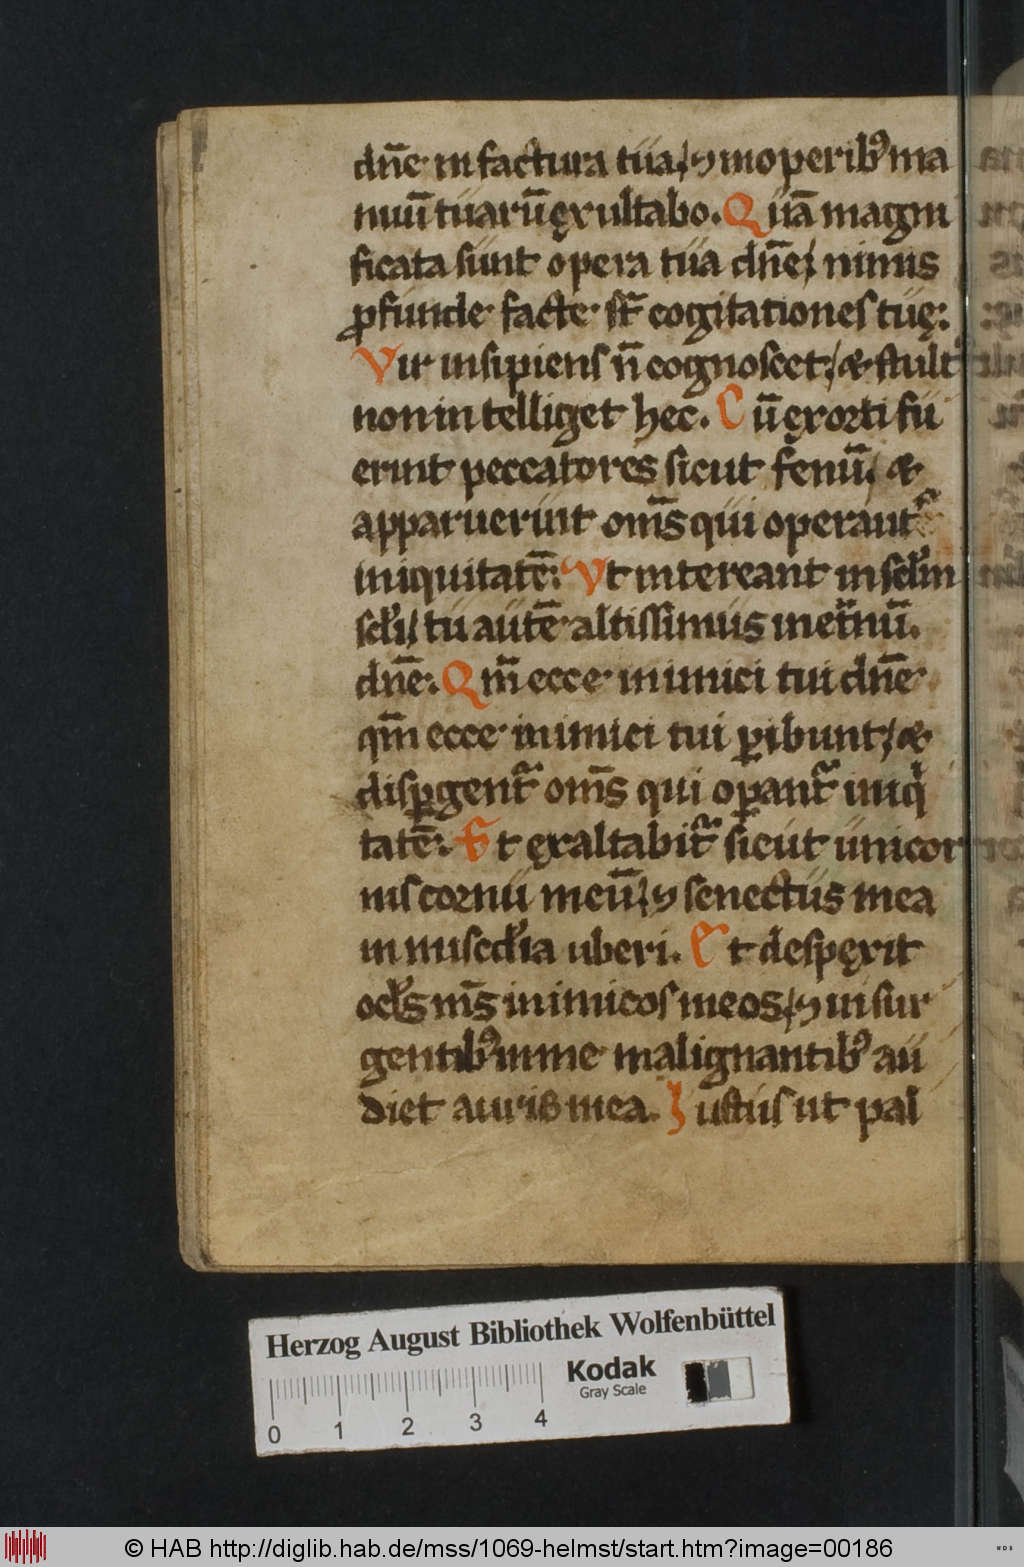 dn̄e in factura tua, ⁊ in operibꝰ ma
nuū tuarū ęxultabo. Quā magni
ficata sunt opera tua dn̄e, nimis
ꝓfunde facte st̄ cogitationes tuę:
Vir insipiens n̄ cognoscet, & stult
non intelliget hec. Cū ęxorti fu
erint peccatores sicut fenū, &
apparuerunt om̄s qui operant᷑
iniquitatē: Vt intereant in sclm̄
scli, tu autē altissimus inet̄nū.
dn̄e. Qm̄ ecce inimici tui dn̄e
qm̄ ecce inimici tui ꝑibunt, &
dispgent᷑ om̄s qui oꝑant᷑ iniq
tatē. Et ęxaltabit᷑ sicut unicor
nis cornu meū, ⁊ senectus mea
in misc̄dia uberi. Et despęxit
ocls m̄s inimicos meos, ⁊ insur
gentibꝰ in me malignantibꝰ au
diet auris mea. Iustus ut pal
Herzog August Bibliothek Wolfenbüttel
Kodak
Gray Scale
0 1 2 3 4
© HAB http://diglib.hab.de/mss/1069-helmst/start.htm?image=00186